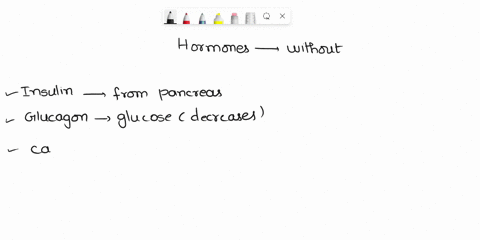 Hormones → without
✓ Insulin → from pancreas
✓ Glucagon → glucose (decreases)
✓ ca